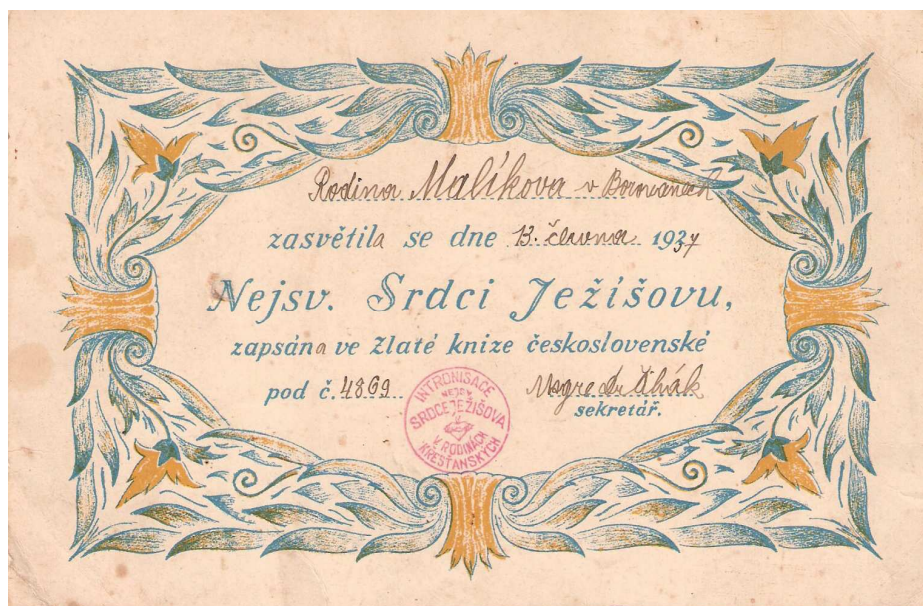 Rodina Malíkova v Borovanech
zasvětila se dne 13. června 1937
Nejsv. Srdci Ježíšovu,
zapsána ve Zlaté knize československé
pod č. 4869
Msgre Dr
sekretář.
INTRONISACE
NEJSV.
SRDCE JEŽÍŠOVA
V RODINÁCH
KŘESŤANSKÝCH